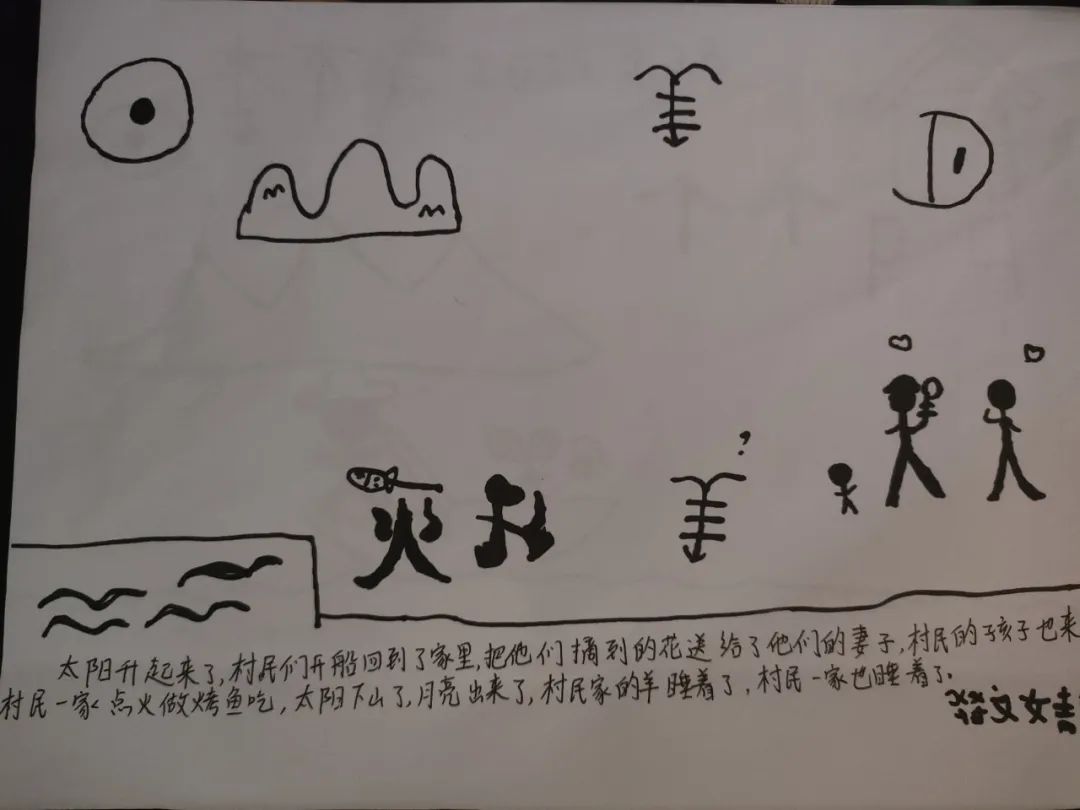 太阳升起来了,村民们开船回到了家里,把他们摘到的花送给了他们的妻子,村民的孩子也来
村民一家点火做烤鱼吃,太阳下山了,月亮出来了,村民家的羊睡着了,村民一家也睡着了.
?